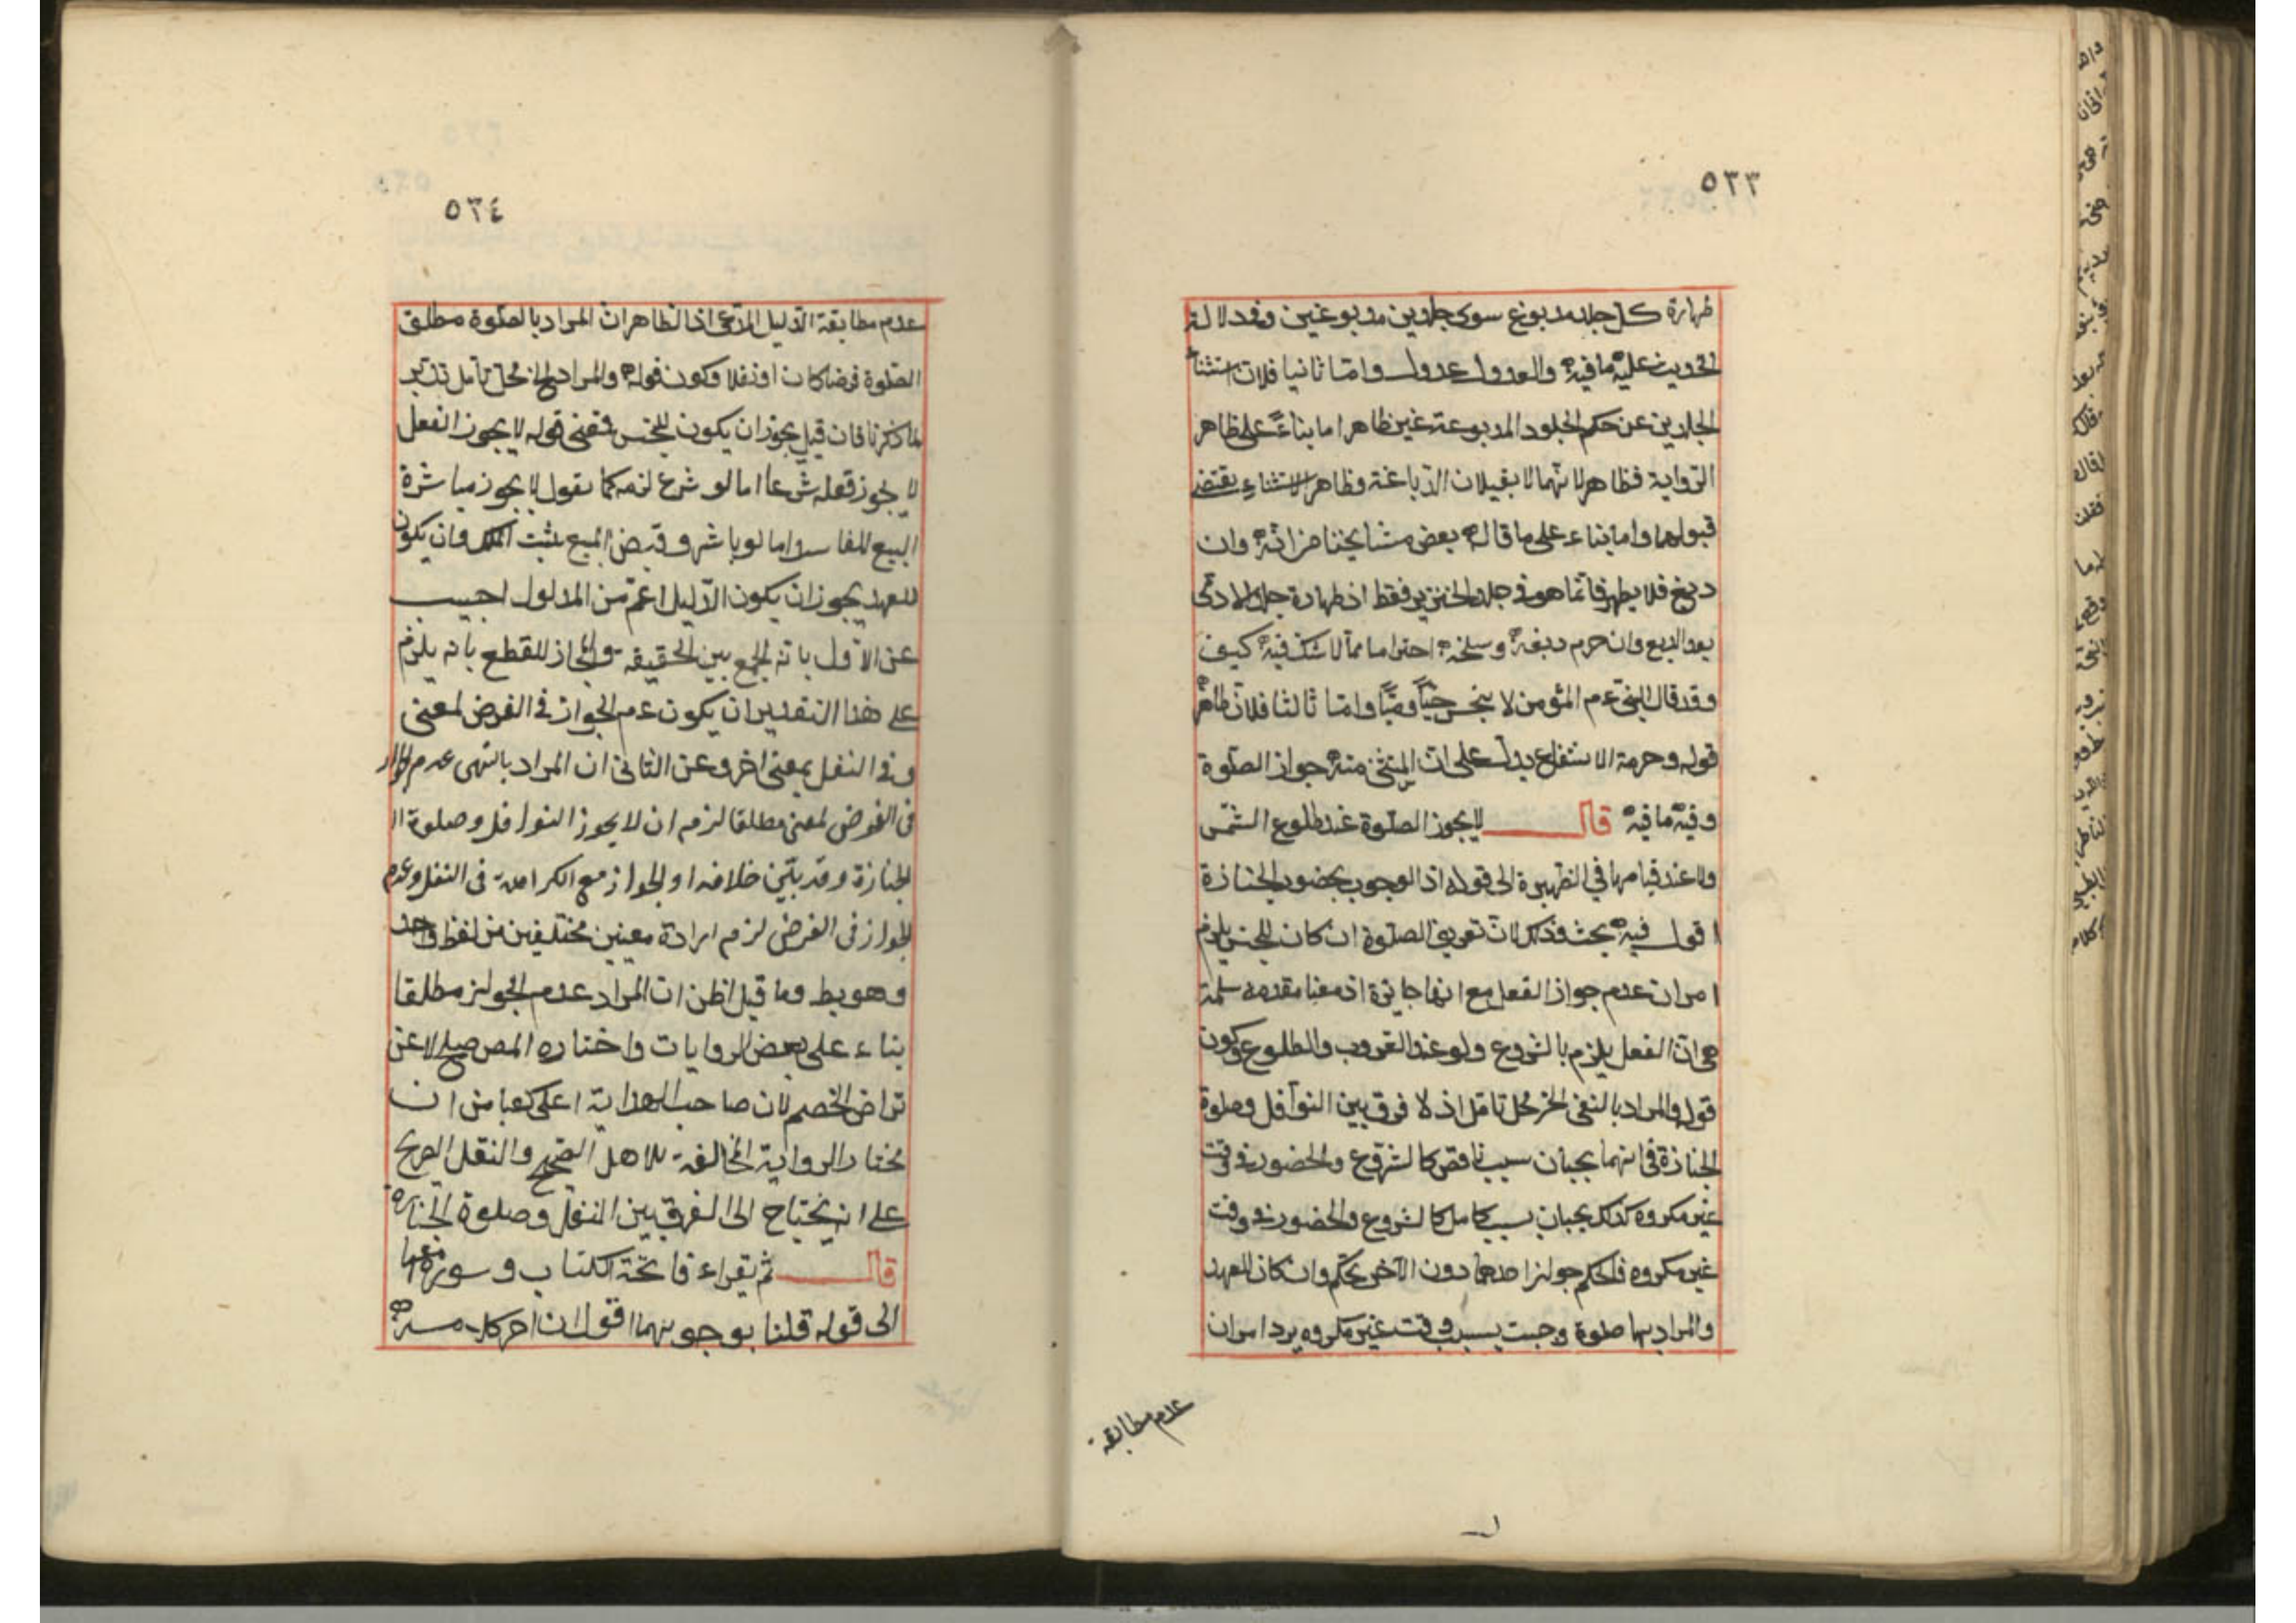 ٥٣٣
طهارة كل جلد مدبوغ سوى جلدين مدبوغين وفدلالة
عليه ما فيه والعدول عدول واما ثانيا فلان استثناء
الجلدين عن حكم الجلود المدبوغة غير ظاهر اما بناءً على ظاهر
الرواية فظاهر لانهما لا يقبلان الدباغة وظاهر الاستثناء يقتضى
قبولهما واما بناء على ما قاله بعض مشايخنا من انه وان
دبغ فلا يطهر فانما هو فى جلد الخنزير فقط اذ طهارة جلد الادمى
بعد الدبغ وان حرم دبغه وسلخه احتراما مما لا شك فيه كيف
وقد قال النبى عم المؤمن لا ينجس حيّا وميّا واما ثالثا فلان ظاهر
قوله وحرمة الانتفاع يدل على ان المستثنى منه جواز الصلوة
وفيه ما فيه قال لا يجوز الصلوة عند طلوع الشمس
ولا عند قيامها فى الظهيرة الى قوله اذ الوجوب بحضور الجنازة
اقول فيه بحث وذلك لان تعريف الصلوة ان كان للجنس يلزم
امران عدم جواز الفعل مع انها جائزة اذ معنا مقدمه سلمة
هى ان الفعل يلزم بالشروع ولو عند الغروب والطلوع وكون
قوله والمراد بالنفى الخ محل تامل اذ لا فرق بين النوافل وصلوة
الجنازة فى انهما يجبان بسبب ناقص كالشروع والحضور فى وقت
غير مكروه كذلك يجبان بسبب كامل كالشروع والحضور فى وقت
غير مكروه فالحكم جواز احدهما دون الآخر تحكم وان كان للعهد
والمراد بها صلوة وجبت بسبب وقت غير مكروه يرد امران
عدم مطابقة
٥٣٤
عدم مطابقة الدليل المدعى اذ الظاهر ان المراد بالصلوة مطلق
الصلوة فرضا كان او نفلا وكون قوله والمراد الخ محل تامل تدبر
لما ذكرنا فان قيل يجوز ان يكون للجنس فمعنى قوله لا يجوز الفعل
لا يجوز فعله شرعا اما لو شرع لزمه كما نقول لا يجوز مباشرة
البيع الفاسد واما لو باشر وقبض المبيع يثبت الملك وان يكون
للعهد يجوز ان يكون الدليل اعم من المدلول اجيب
عن الاول بانه الجمع بين الحقيقة والمجاز للقطع بانه يلزم
على هذا التقدير ان يكون عدم الجواز فى الفرض لمعنى
وفى النفل بمعنى اخر وعن الثانى ان المراد بالنهى عدم الجواز
فى الفرض لمعنى مطلقا لزم ان لا يجوز النوافل وصلوة ا
لجنازة وقد بيّن خلافه او الجواز مع الكراهة فى النفل وعدم
الجواز فى الفرض لزم ارادة معنيين مختلفين من لفظ واحد
وهو بط وما قيل اظن ان المراد عدم الجواز مطلقا
بناء على بعض الروايات واختاره المص صلح لا عن
تراض الخصم لان صاحب الهداية اعلى كعبا من ان
يختار الرواية المخالفة للاصل الصحيح والنقل الصريح
على انه يحتاج الى الفرق بين النفل وصلوة الجنازة
قال ثم يقراء فاتحة الكتاب وسورة معها
الى قوله قلنا بوجوبهما اقول ان احر كلامه